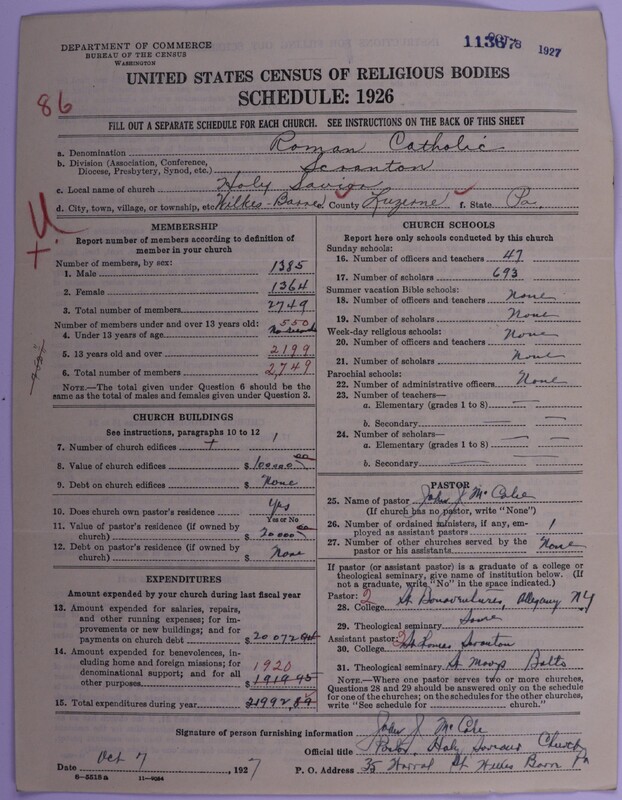 DEPARTMENT OF COMMERCE
BUREAU OF THE CENSUS
WASHINGTON
1927
86
UNITED STATES CENSUS OF RELIGIOUS BODIES
SCHEDULE: 1926
FILL OUT A SEPARATE SCHEDULE FOR EACH CHURCH. SEE INSTRUCTIONS ON THE BACK OF THIS SHEET
a. Denomination Roman Catholic
b. Division (Association, Conference, Diocese, Presbytery, Synod, etc.) Scranton
c. Local name of church Holy Savior
d. City, town, village, or township, etc. Wilkes-Barre e. County Luzerne f. State Pa.
MEMBERSHIP
Report number of members according to definition of
member in your church
Number of members, by sex:
1. Male 1385
2. Female 1364
3. Total number of members 2749
Number of members under and over 13 years old:
4. Under 13 years of age 550
5. 13 years old and over 2199
6. Total number of members 2,749
NOTE.—The total given under Question 6 should be
same as the total of males and females given under Question 3.
CHURCH BUILDINGS
See instructions, paragraphs 10 to 12
7. Number of church edifices 1
8. Value of church edifices $ 100000 00
9. Debt on church edifices $ None
10. Does church own pastor's residence? Yes
Yes or No
11. Value of pastor's residence (if owned by
church) $ 20000 00
12. Debt on pastor's residence (if owned by
church) $ None
EXPENDITURES
Amount expended by your church during last fiscal year
13. Amount expended for salaries, repairs,
and other running expenses; for im-
provements or new buildings; and for
payments on church debt $ 20072
14. Amount expended for benevolences, in-
cluding home and foreign missions; for
denominational support; and for all
other purposes 1920
$ 1919 45
15. Total expenditures during year 21992
CHURCH SCHOOLS
Report here only schools conducted by this church
Sunday schools:
16. Number of officers and teachers 47
17. Number of scholars 693
Summer vacation Bible schools:
18. Number of officers and teachers None
19. Number of scholars None
Week-day religious schools:
20. Number of officers and teachers None
21. Number of scholars None
Parochial schools:
22. Number of administrative officers None
23. Number of teachers—
a. Elementary (grades 1 to 8)
b. Secondary
24. Number of scholars—
a. Elementary (grades 1 to 8)
b. Secondary
PASTOR
25. Name of pastor John J McCabe
(If church has no pastor, write "None")
26. Number of ordained ministers, if any, em-
ployed as assistant pastors 1
27. Number of other churches served by the
pastor or his assistants None
If pastor (or assistant pastor) is a graduate of a college or
theological seminary, give name of institution below. (If
not a graduate, write "No" in the space indicated.)
Pastor: 2
28. College St Bonaventures, Allegany N.Y
29. Theological seminary Same
Assistant pastor: 2
30. College St Thomas Scranton
31. Theological seminary St Marys Balto
NOTE.—Where one pastor serves two or more churches,
Questions 28 and 29 should be answered only on the schedule
for one of the churches; on the schedules for the other churches,
write "See schedule for ........ church."
Signature of person furnishing information John J McCabe
Official title Pastor, Holy Saviour Church
Date Oct 7, 1927 P. O. Address 35 Wilkes Barre Pa
8-5518a 11-9264